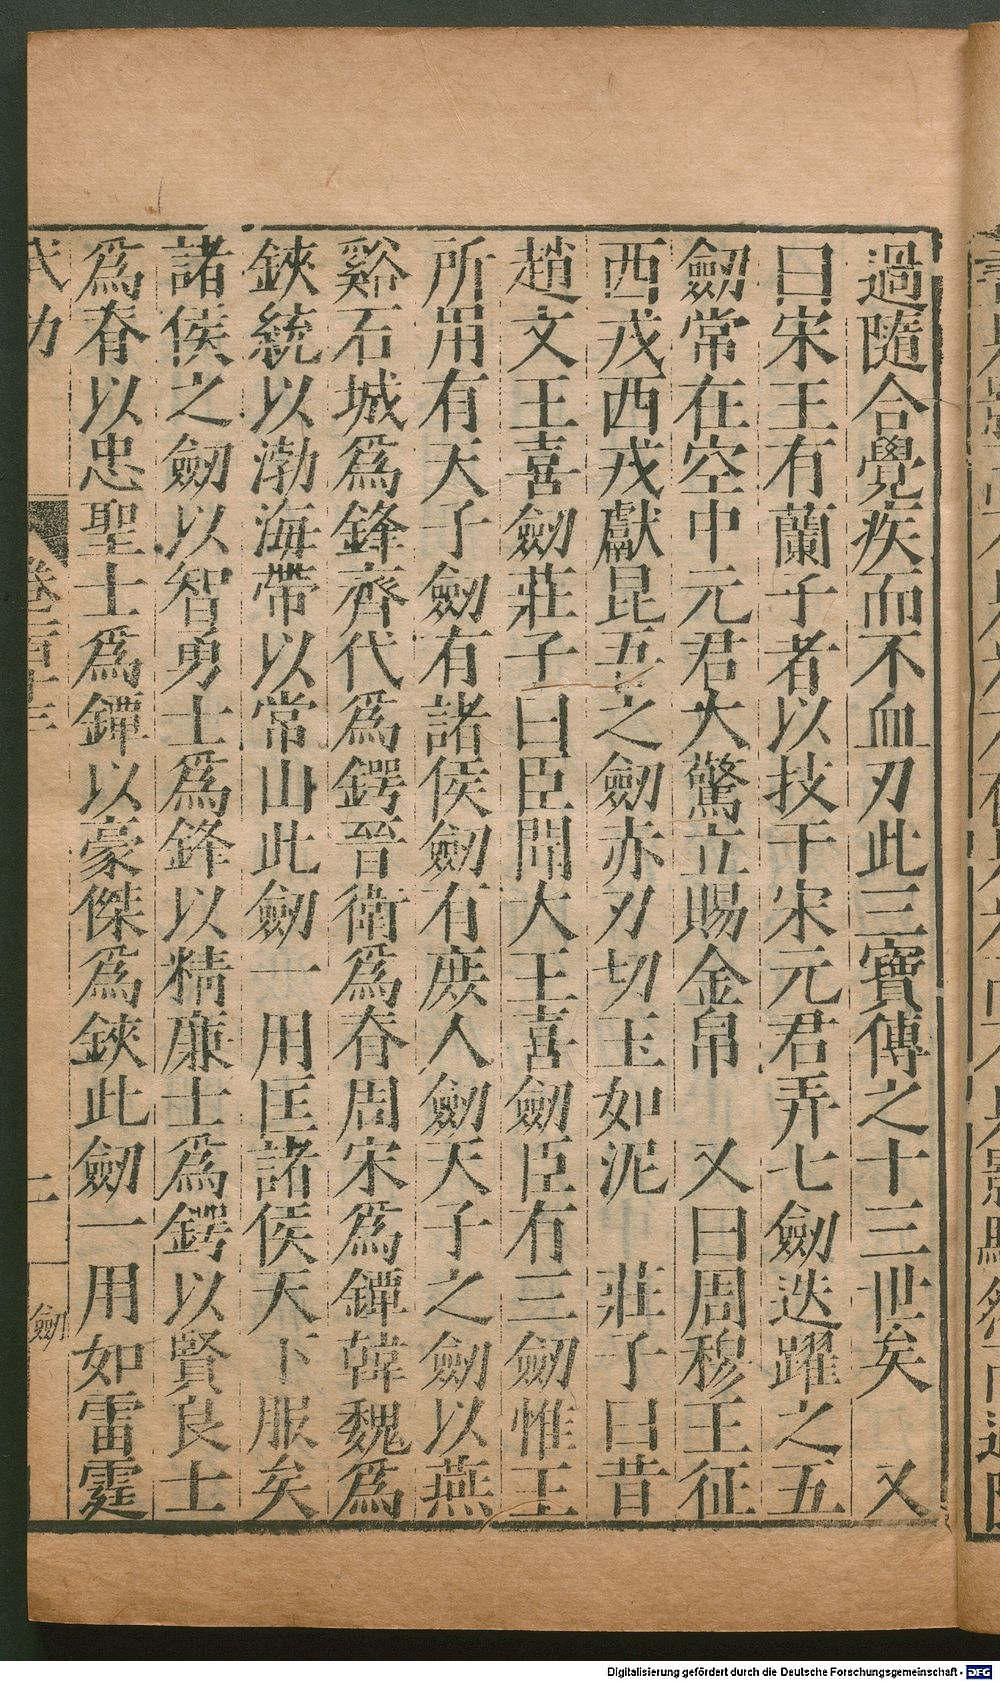 過隨合覺疾而不血刃此三寶傳之十三世矣　又
曰宋王有蘭子者以技干宋元君弄七劒迭躍之五
劒常在空中元君大驚立賜金帛　又曰周穆王征
西戎西戎獻昆吾之劒赤刃切玉如泥　莊子曰昔
趙文王喜劒莊子曰臣聞大王喜劒臣有三劒惟王
所用有天子劒有諸侯劒有庻人劒天子之劒以燕
谿石城爲鋒齊代爲鍔晉衛爲春周宋爲鐔韓魏爲
鋏統以渤海帶以常山此劒一用匡諸侯天下服矣
諸侯之劒以智勇士爲鋒以精廉士爲鍔以賢良士
爲春以忠聖士爲鐔以豪傑爲鋏此劒一用如雷霆
武功
卷
二
劒
Digitalisierung gefördert durch die Deutsche Forschungsgemeinschaft - DFG